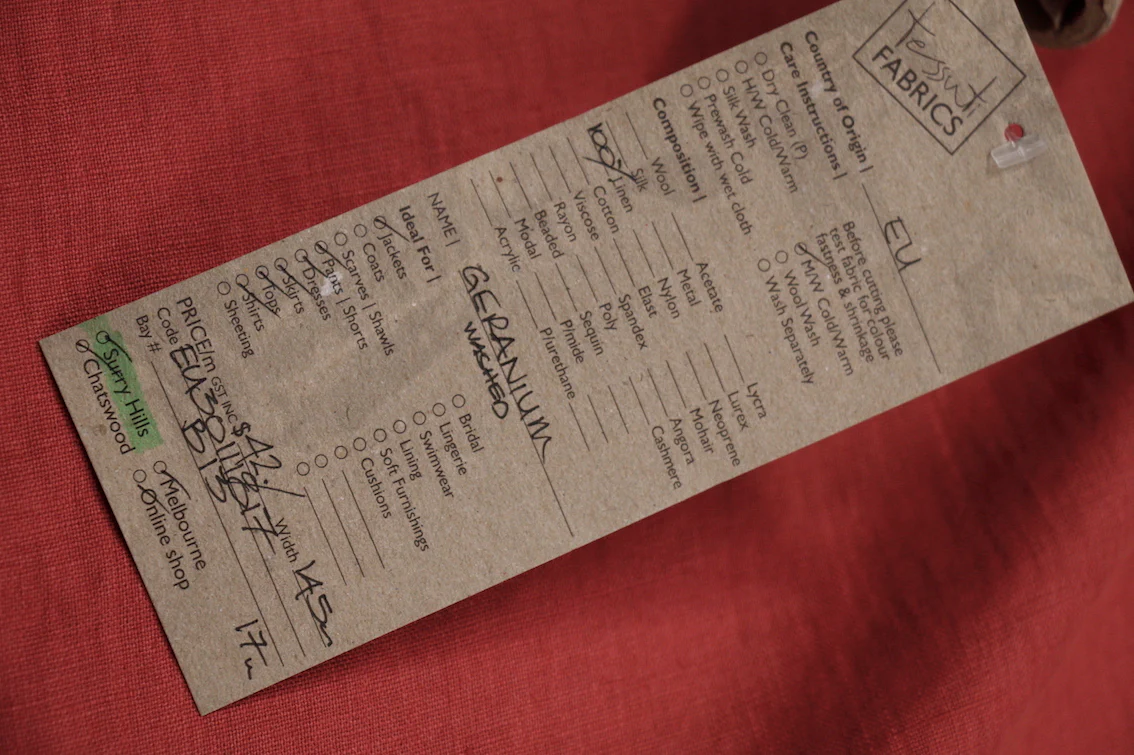 tessuti
FABRICS
Country of Origin | EU
Care Instructions |
Dry Clean (P)
H/W Cold/Warm
Silk Wash
Prewash Cold
Wipe with wet cloth
Before cutting please
test fabric for colour
fastness & shrinkage
M/W Cold/Warm
Wool Wash
Wash Separately
Composition |
Wool
Silk
100% Linen
Cotton
Viscose
Rayon
Beaded
Modal
Acrylic
Acetate
Metal
Nylon
Elast
Spandex
Poly
Sequin
P/mide
P/urethane
Lycra
Lurex
Neoprene
Mohair
Angora
Cashmere
NAME | GERANIUM
WASHED
Ideal For |
Jackets
Coats
Scarves | Shawls
Pants | Shorts
Dresses
Skirts
Tops
Shirts
Sheeting
Bridal
Lingerie
Swimwear
Lining
Soft Furnishings
Cushions
PRICE/m GST INC $ 42./ Width 145
Code
Bay #. B13
Surry Hills
Chatswood
Melbourne
Online shop